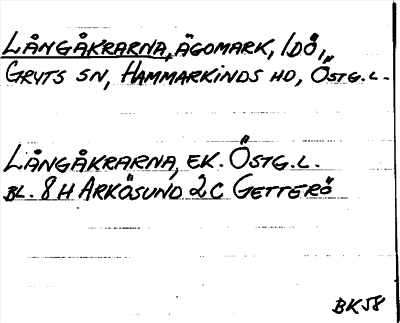 LÅNGÅKRARNA, ÄGOMARK, IDÖ,
GRYTS SN, HAMMARKINDS HD, ÖSTG.L.
LÅNGÅKRARNA, EK. ÖSTG.L.
BL. 8H ARKÖSUND 2C GETTERÖ
BK58